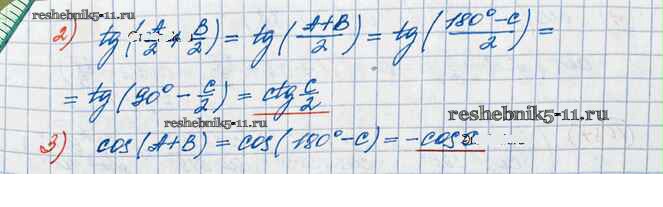 2) tg(A/2 + B/2) = tg((A+B)/2) = tg((180° - C)/2) =
reshebnik5-11.ru
= tg(90° - C/2) = ctg C/2
reshebnik5-11.ru
reshebnik5-11.ru
3) cos(A+B) = cos(180° - C) = -cos